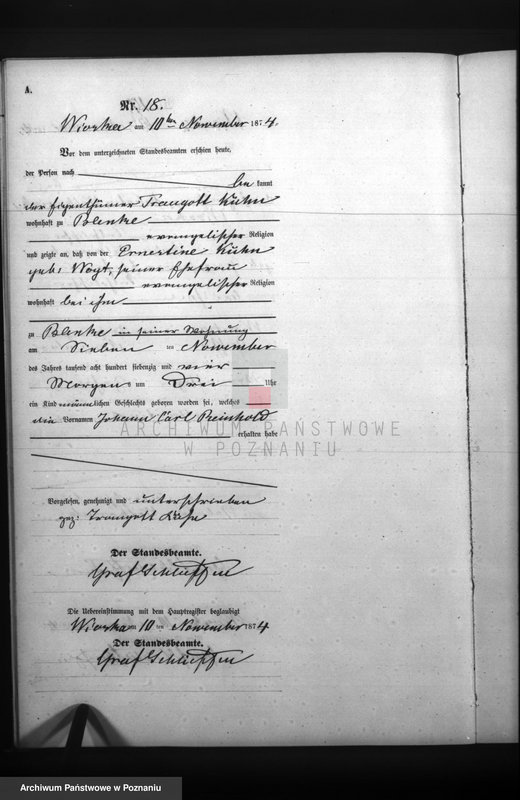 A.
Nr. 18.
Wioska am 10ten November 1874.
Vor dem unterzeichneten Standesbeamten erschien heute,
der Person nach
be kannt
der Eigenthümer Traugott Kuhn
wohnhaft zu Blenke
evangelischer Religion
und zeigte an, daß von der Ernestine Kuhn
geb: Vogt, seiner Ehefrau
evangelischer Religion
wohnhaft bei ihm
zu Blenke in seiner Wohnung
am Sieben ten November
des Jahres tausend acht hundert siebenzig und vier
Morgens um Drei Uhr
ein Kind männlichen Geschlechts geboren worden sei, welches
die Vornamen Johann Carl Reinhold
erhalten habe
ARCHIWUM PAŃSTWOWE
W POZNANIU
Vorgelesen, genehmigt und unterschrieben
gez: Traugott
Der Standesbeamte.
Graf Schlieffen
Die Uebereinstimmung mit dem Hauptregister beglaubigt
Wioska am 10 ten November 1874
Der Standesbeamte.
Graf Schlieffen
Archiwum Państwowe w Poznaniu